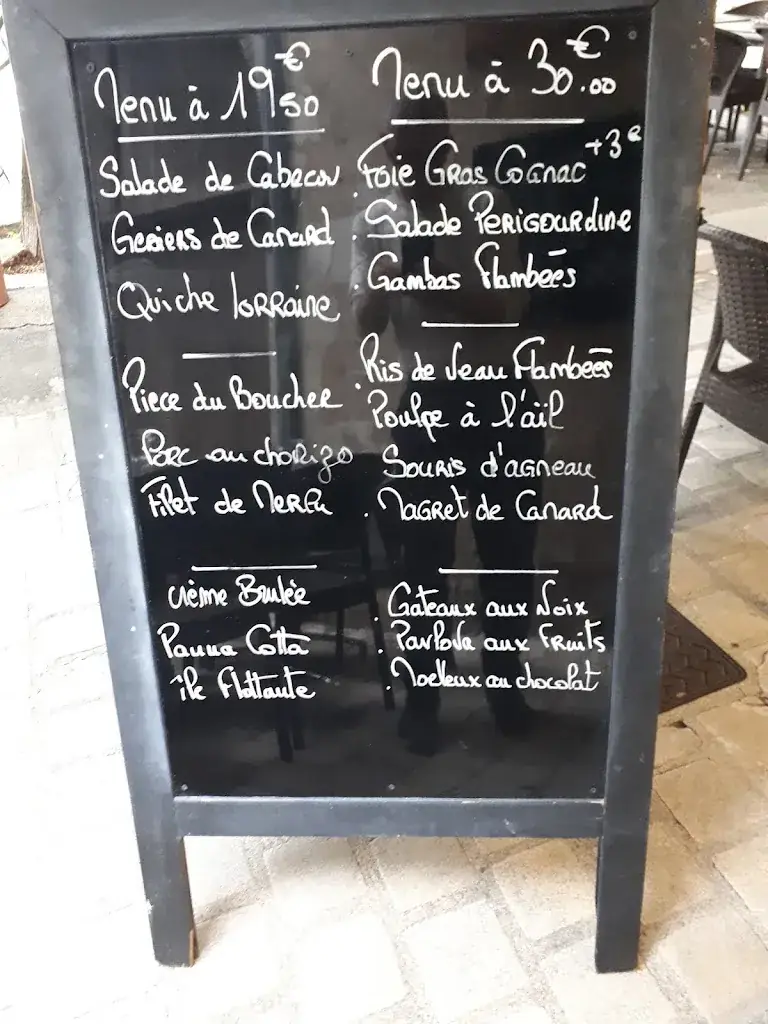 Menu à 19€50
Salade de Cabecou
Gesiers de Canard
Quiche lorraine
Piece du Boucher
Porc au chorizo
Filet de Merlu
crème Brulée
Panna Cotta
île Flottante
Menu à 30.00€
Foie Gras Cognac +3€
. Salade Perigourdine
. Gambas Flambées
. Ris de Veau Flambées
Poulpe à l'ail
Souris d'agneau
. Magret de Canard
. Gateaux aux Noix
. Pavlova aux Fruits
. Moelleux au chocolat